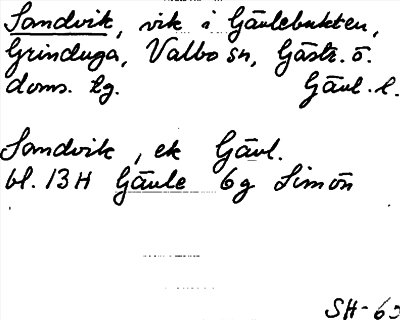 Sandvik, vik i Gävlebukten,
Grinduga, Valbo sn, Gästr. ö.
doms. tg. Gävl. l.
Sandvik, ek Gävl.
bl. 13H Gävle 6g Limön
SH-65